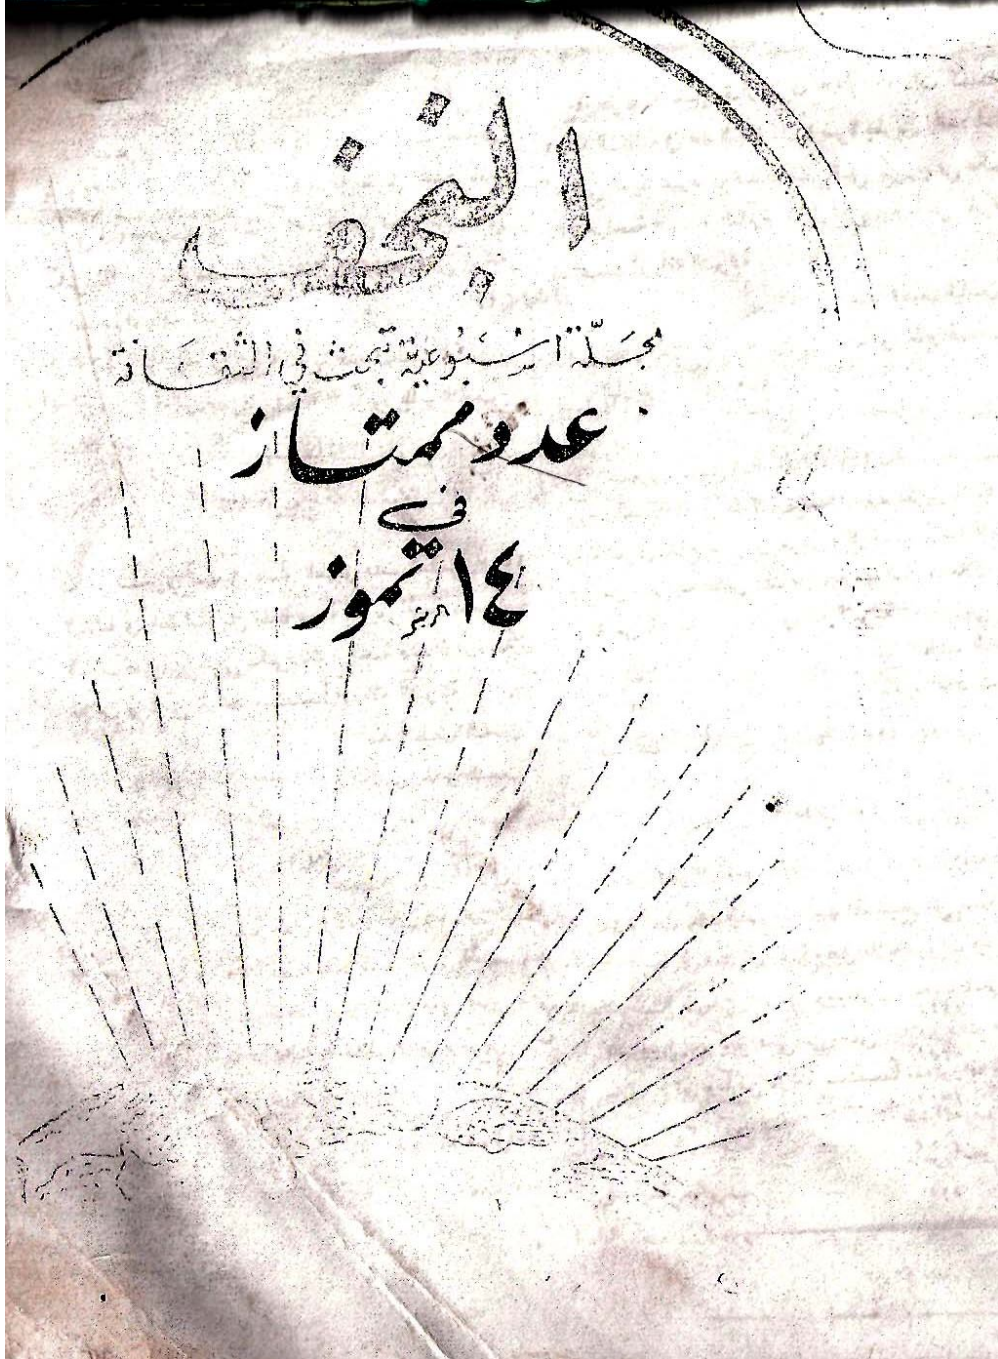 النجف
مجلة اسبوعية تبحث في الثقافة
عدد ممتاز
في
١٤ تموز